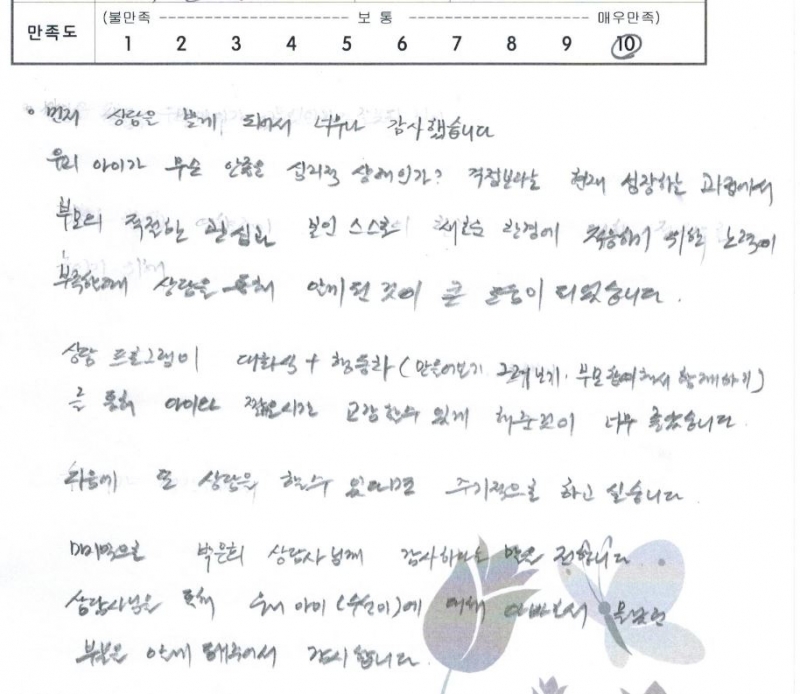 만족도
(불만족 ---------------------- 보 통 ---------------------- 매우만족)
1 2 3 4 5 6 7 8 9 10
• 먼저 상담을 받게 되어서 너무나 감사했습니다
우리 아이가 무슨 심리적 상태인가? 걱정보다는 현재 성장하는 과정에서
부모의 적절한 관심과 본인 스스로 새로운 환경에 적응하기 위한 노력이
부족한게 상담을 통해 알게된 것이 큰 도움이 되었습니다.
상담 프로그램이 대화식 + (만들어보기, 그려보기, 부모참여해서 함께하기)
를 통해 아이와 짧은시간 교감할수 있게 해준것이 너무 좋았습니다.
다음에 또 상담을 할수 있다면 주기적으로 하고 싶습니다.
마지막으로 박은희 상담사님께 감사하다는 말을 전합니다
상담사님을 통해 우리 아이 에 대해 아빠로서 몰랐던
부분을 알게 해주어서 감사합니다.